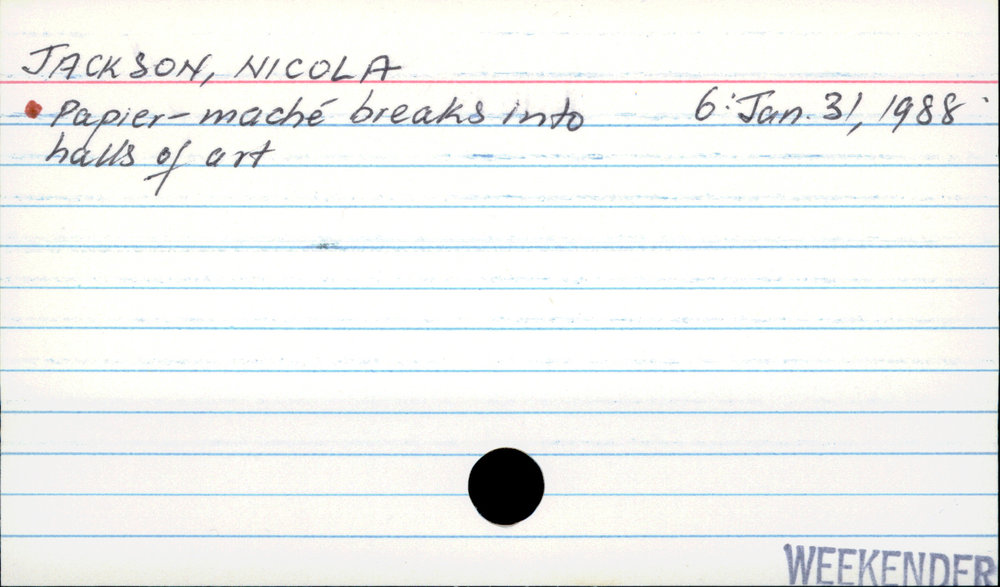 JACKSON, NICOLA
• Papier-maché breaks into 6: Jan. 31, 1988
halls of art
WEEKENDER